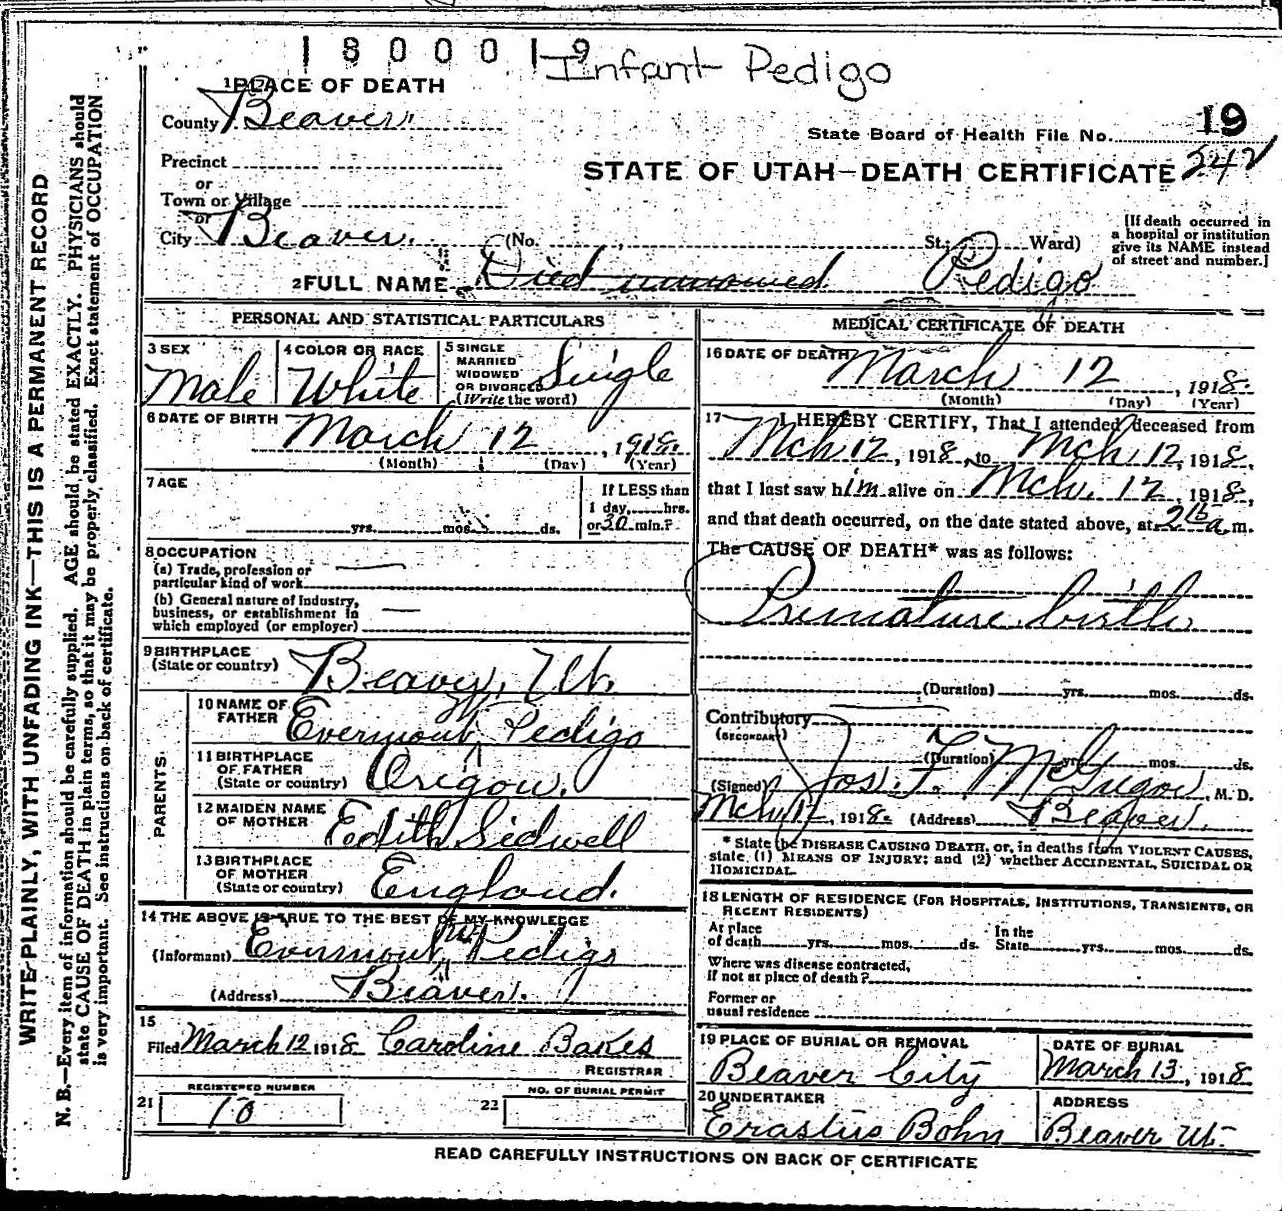 1800019 Infant Pedigo
1 PLACE OF DEATH
County Beaver
State Board of Health File No. 19
Precinct
STATE OF UTAH—DEATH CERTIFICATE 242
or
Town or Village
or
City Beaver (No. St.; Ward)
[If death occurred in
a hospital or institution
give its NAME instead
of street and number.]
2 FULL NAME Died unnamed Pedigo
PERSONAL AND STATISTICAL PARTICULARS
3 SEX
Male
4 COLOR OR RACE
White
5 SINGLE
MARRIED
WIDOWED
OR DIVORCED
(Write the word)
Single
6 DATE OF BIRTH
March 12, 1918.
(Month) (Day) (Year)
7 AGE
yrs. mos. ds.
If LESS than
1 day, hrs.
or 30 min.?
8 OCCUPATION
(a) Trade, profession or
particular kind of work —
(b) General nature of industry,
business, or establishment in
which employed (or employer) —
9 BIRTHPLACE
(State or country)
Beaver, Ut.
PARENTS
10 NAME OF
FATHER
Evermont Pedigo
11 BIRTHPLACE
OF FATHER
(State or country)
Origon.
12 MAIDEN NAME
OF MOTHER
Edith Sidwell
13 BIRTHPLACE
OF MOTHER
(State or country)
England.
14 THE ABOVE IS TRUE TO THE BEST OF MY KNOWLEDGE
(Informant) Evermont Pedigo
(Address) Beaver.
15
Filed March 12 1918 Caroline Bakes
REGISTRAR
REGISTERED NUMBER
21 10
NO. OF BURIAL PERMIT
22
MEDICAL CERTIFICATE OF DEATH
16 DATE OF DEATH
March 12, 1918.
(Month) (Day) (Year)
17 I HEREBY CERTIFY, That I attended deceased from
Mch 12, 1918, to Mch. 12, 1918,
that I last saw him alive on Mch. 12, 1918,
and that death occurred, on the date stated above, at 2 a m.
The CAUSE OF DEATH* was as follows:
Premature birth
(Duration) yrs. mos. ds.
Contributory
(SECONDARY)
(Duration) yrs. mos. ds.
(Signed) Jos. F. McGregor, M. D.
Mch 12, 1918. (Address) Beaver.
* State the DISEASE CAUSING DEATH, or, in deaths from VIOLENT CAUSES,
state (1) MEANS OF INJURY; and (2) whether ACCIDENTAL, SUICIDAL OR
HOMICIDAL.
18 LENGTH OF RESIDENCE (FOR HOSPITALS, INSTITUTIONS, TRANSIENTS, OR
RECENT RESIDENTS)
At place
of death yrs. mos. ds.
In the
State yrs. mos. ds.
Where was disease contracted,
if not at place of death?
Former or
usual residence
19 PLACE OF BURIAL OR REMOVAL
Beaver City
DATE OF BURIAL
March 13, 1918
20 UNDERTAKER
Erastus Bohn
ADDRESS
Beaver Ut.
READ CAREFULLY INSTRUCTIONS ON BACK OF CERTIFICATE
WRITE PLAINLY, WITH UNFADING INK—THIS IS A PERMANENT RECORD
N. B.—Every item of information should be carefully supplied. AGE should be stated EXACTLY. PHYSICIANS should
state CAUSE OF DEATH in plain terms, so that it may be properly classified. Exact statement of OCCUPATION
is very important. See instructions on back of certificate.